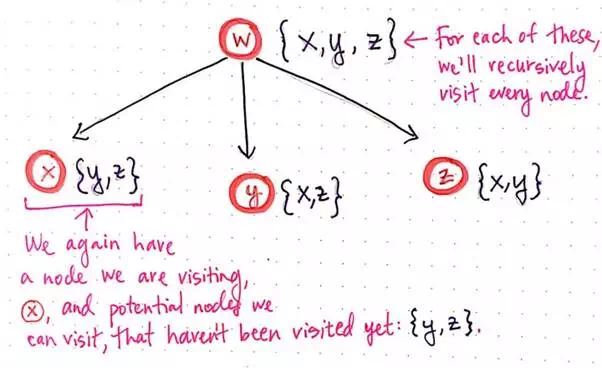 w {x,y,z} ← For each of these,
we'll recursively
visit every node.
x {y,z}
y {x,z}
z {x,y}
We again have
a node we are visiting,
x, and potential nodes we
can visit, that haven't been visited yet: {y,z}.